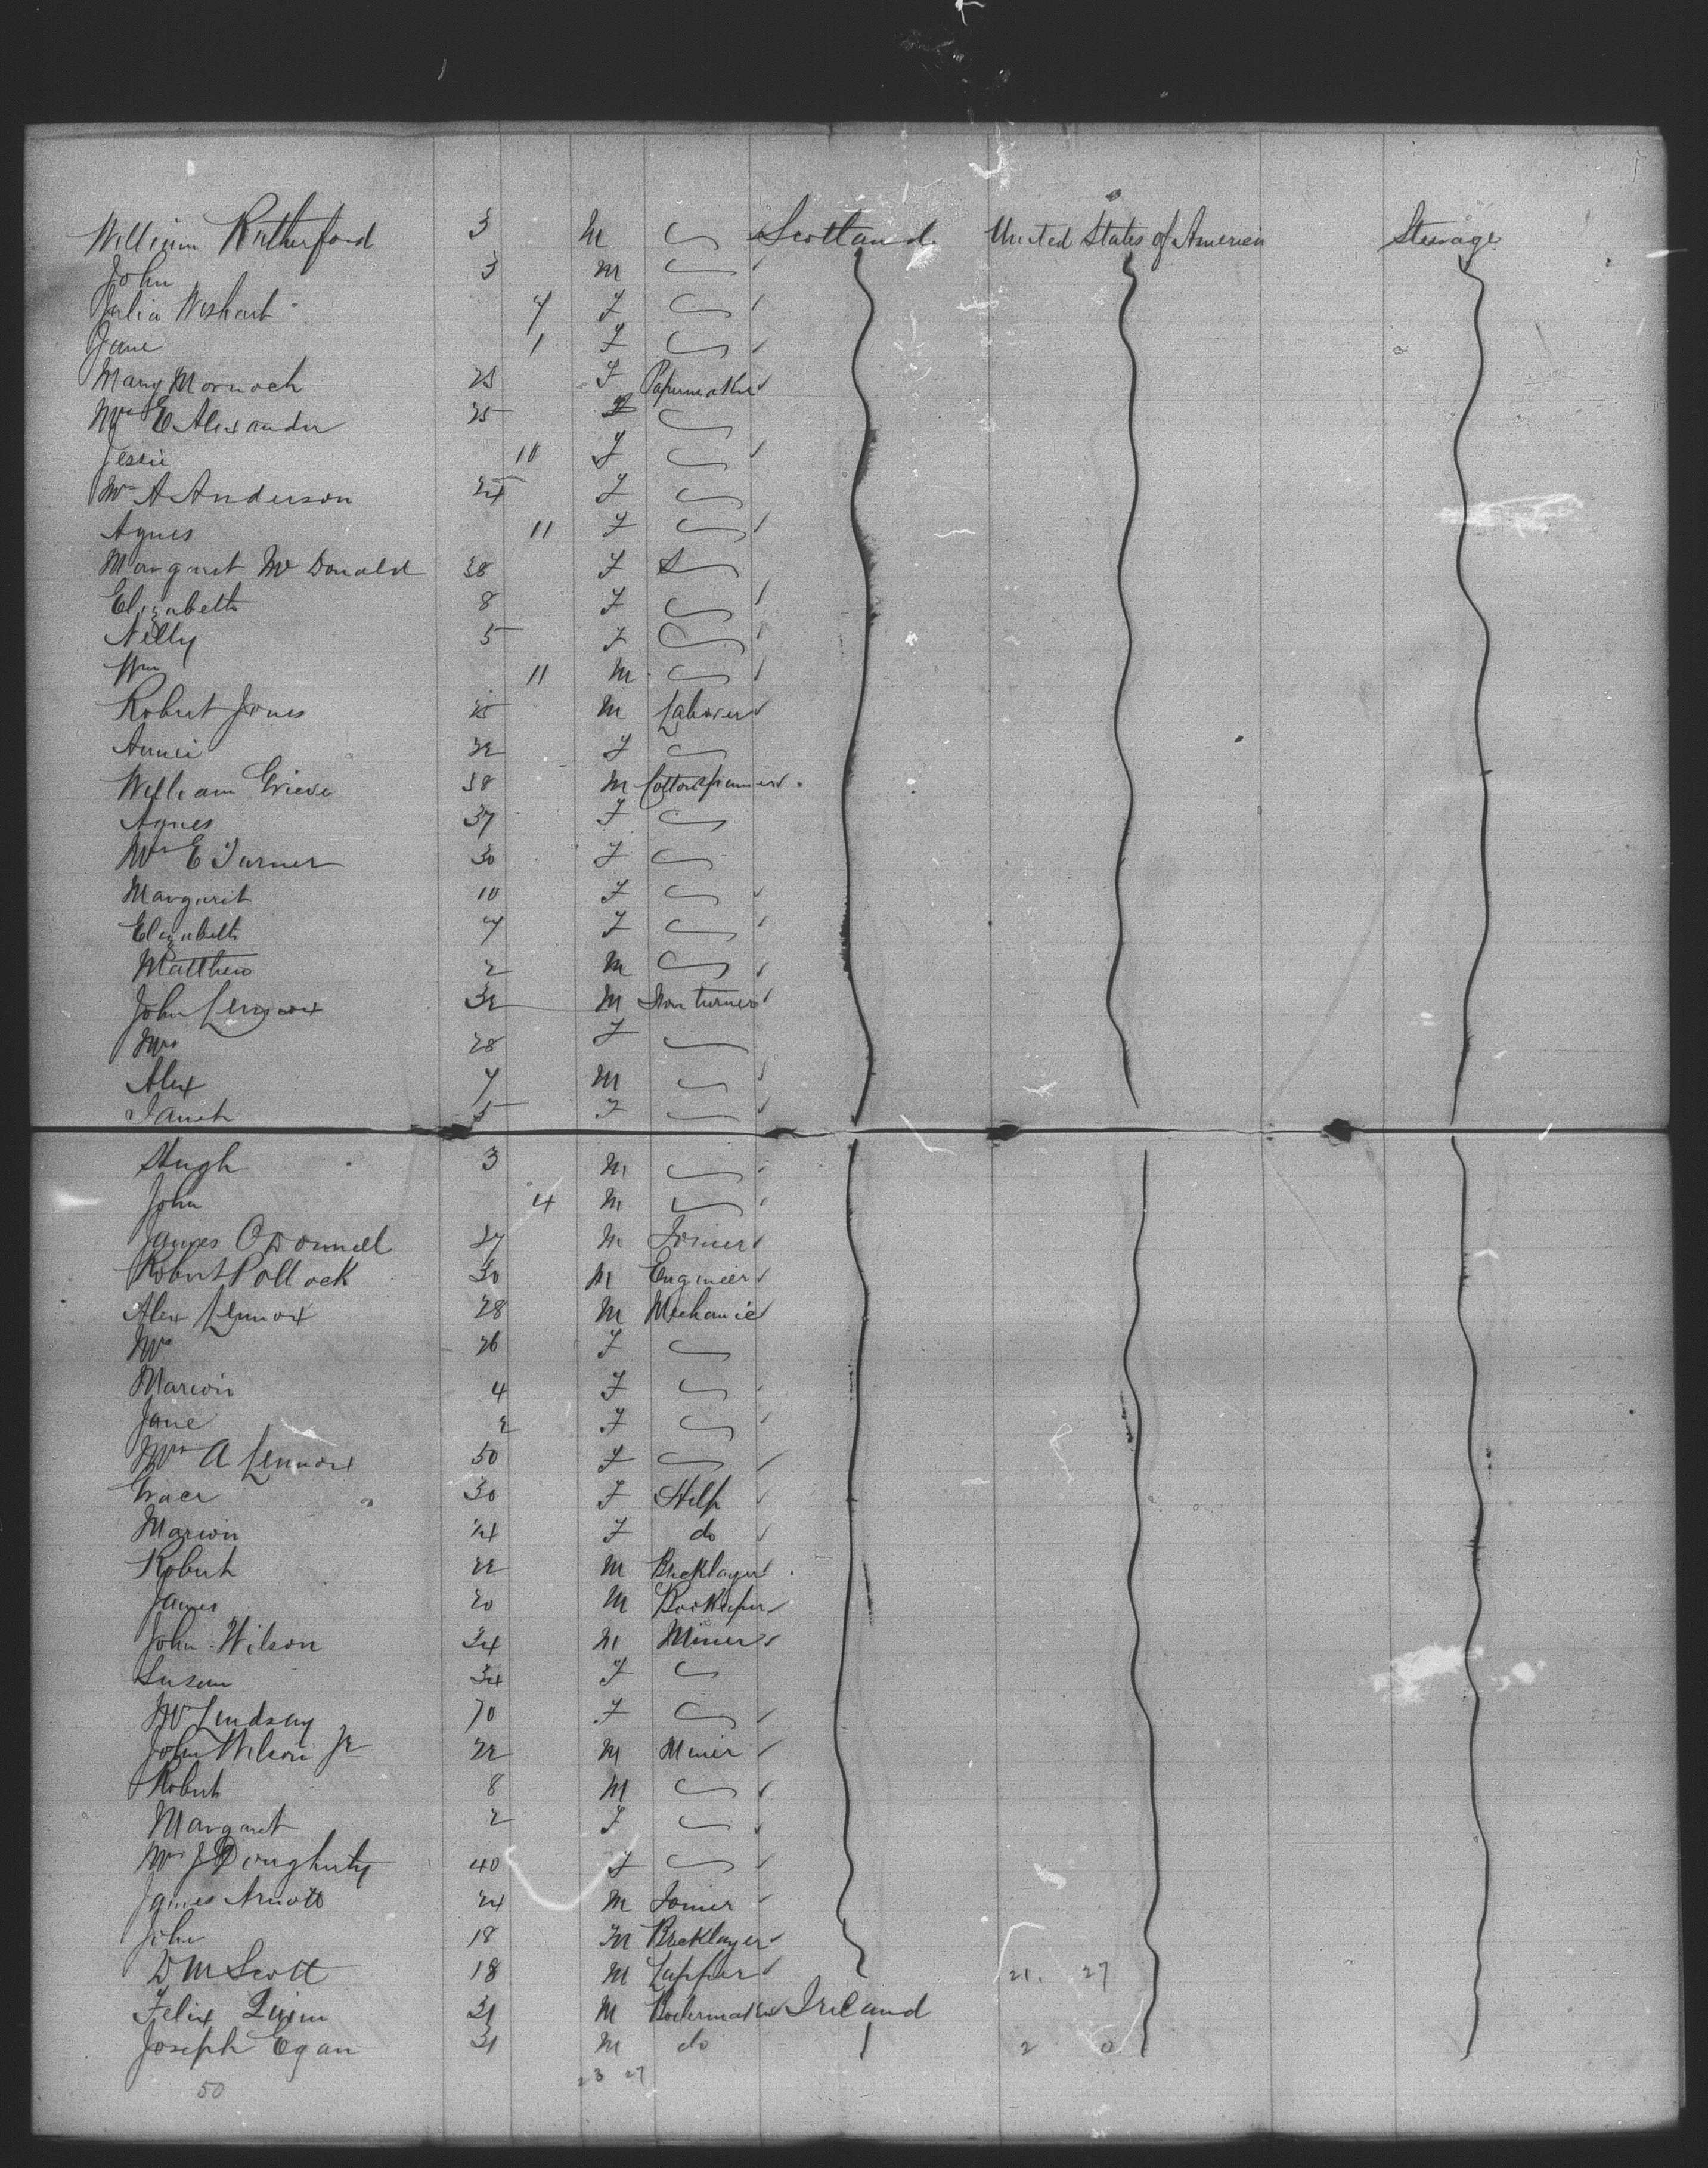 William Rutherford 3 M Scotland United States of America Steerage
John 3 M
Julia Wishart 7 F
Jane 1 F
Mary Mornoch 25 F Papermaker
Mrs E Alexander 25 F
Jessie 10 F
Mrs A Anderson 24 F
Agnes 11 F
Margaret McDonald 38 F
Elizabeth 8 F
Nelly 5 F
Wm 11 M
Robert Jones M Laborer
Annie 32 F
William Grieve 38 M Cottonspinner
Agnes 37 F
Mrs E Turner 30 F
Margaret 10 F
Elizabeth 7 F
Matthew 2 M
John Lennox 32 M Iron turner
Mrs 28 F
Alex 7 M
Janet 5 F
Hugh 3 M
John 4 M
James O'Donnell 27 M Joiner
Robert Pollock 30 M Engineer
Alex Lennox 28 M Mechanic
Mrs 26 F
Marion 4 F
Jane 2 F
Mrs A Lennox 50 F
Grace 30 F Help
Marion 24 F do
Robert 22 M Bricklayer
James 20 M Bookkeeper
John Wilson 34 M Miner
Susan 34 F
Lindsay 70 F
John Wilson Jr 22 M Miner
Robert 8 M
Margaret 2 F
Mrs J Dougherty 40 F
James Arnott 24 M Joiner
John 18 M Bricklayer
D M Scott 18 M Lapper 21. 27
Felix Quinn 31 M Boilermaker Ireland
Joseph Egan 31 M do 2 0
50 23 27